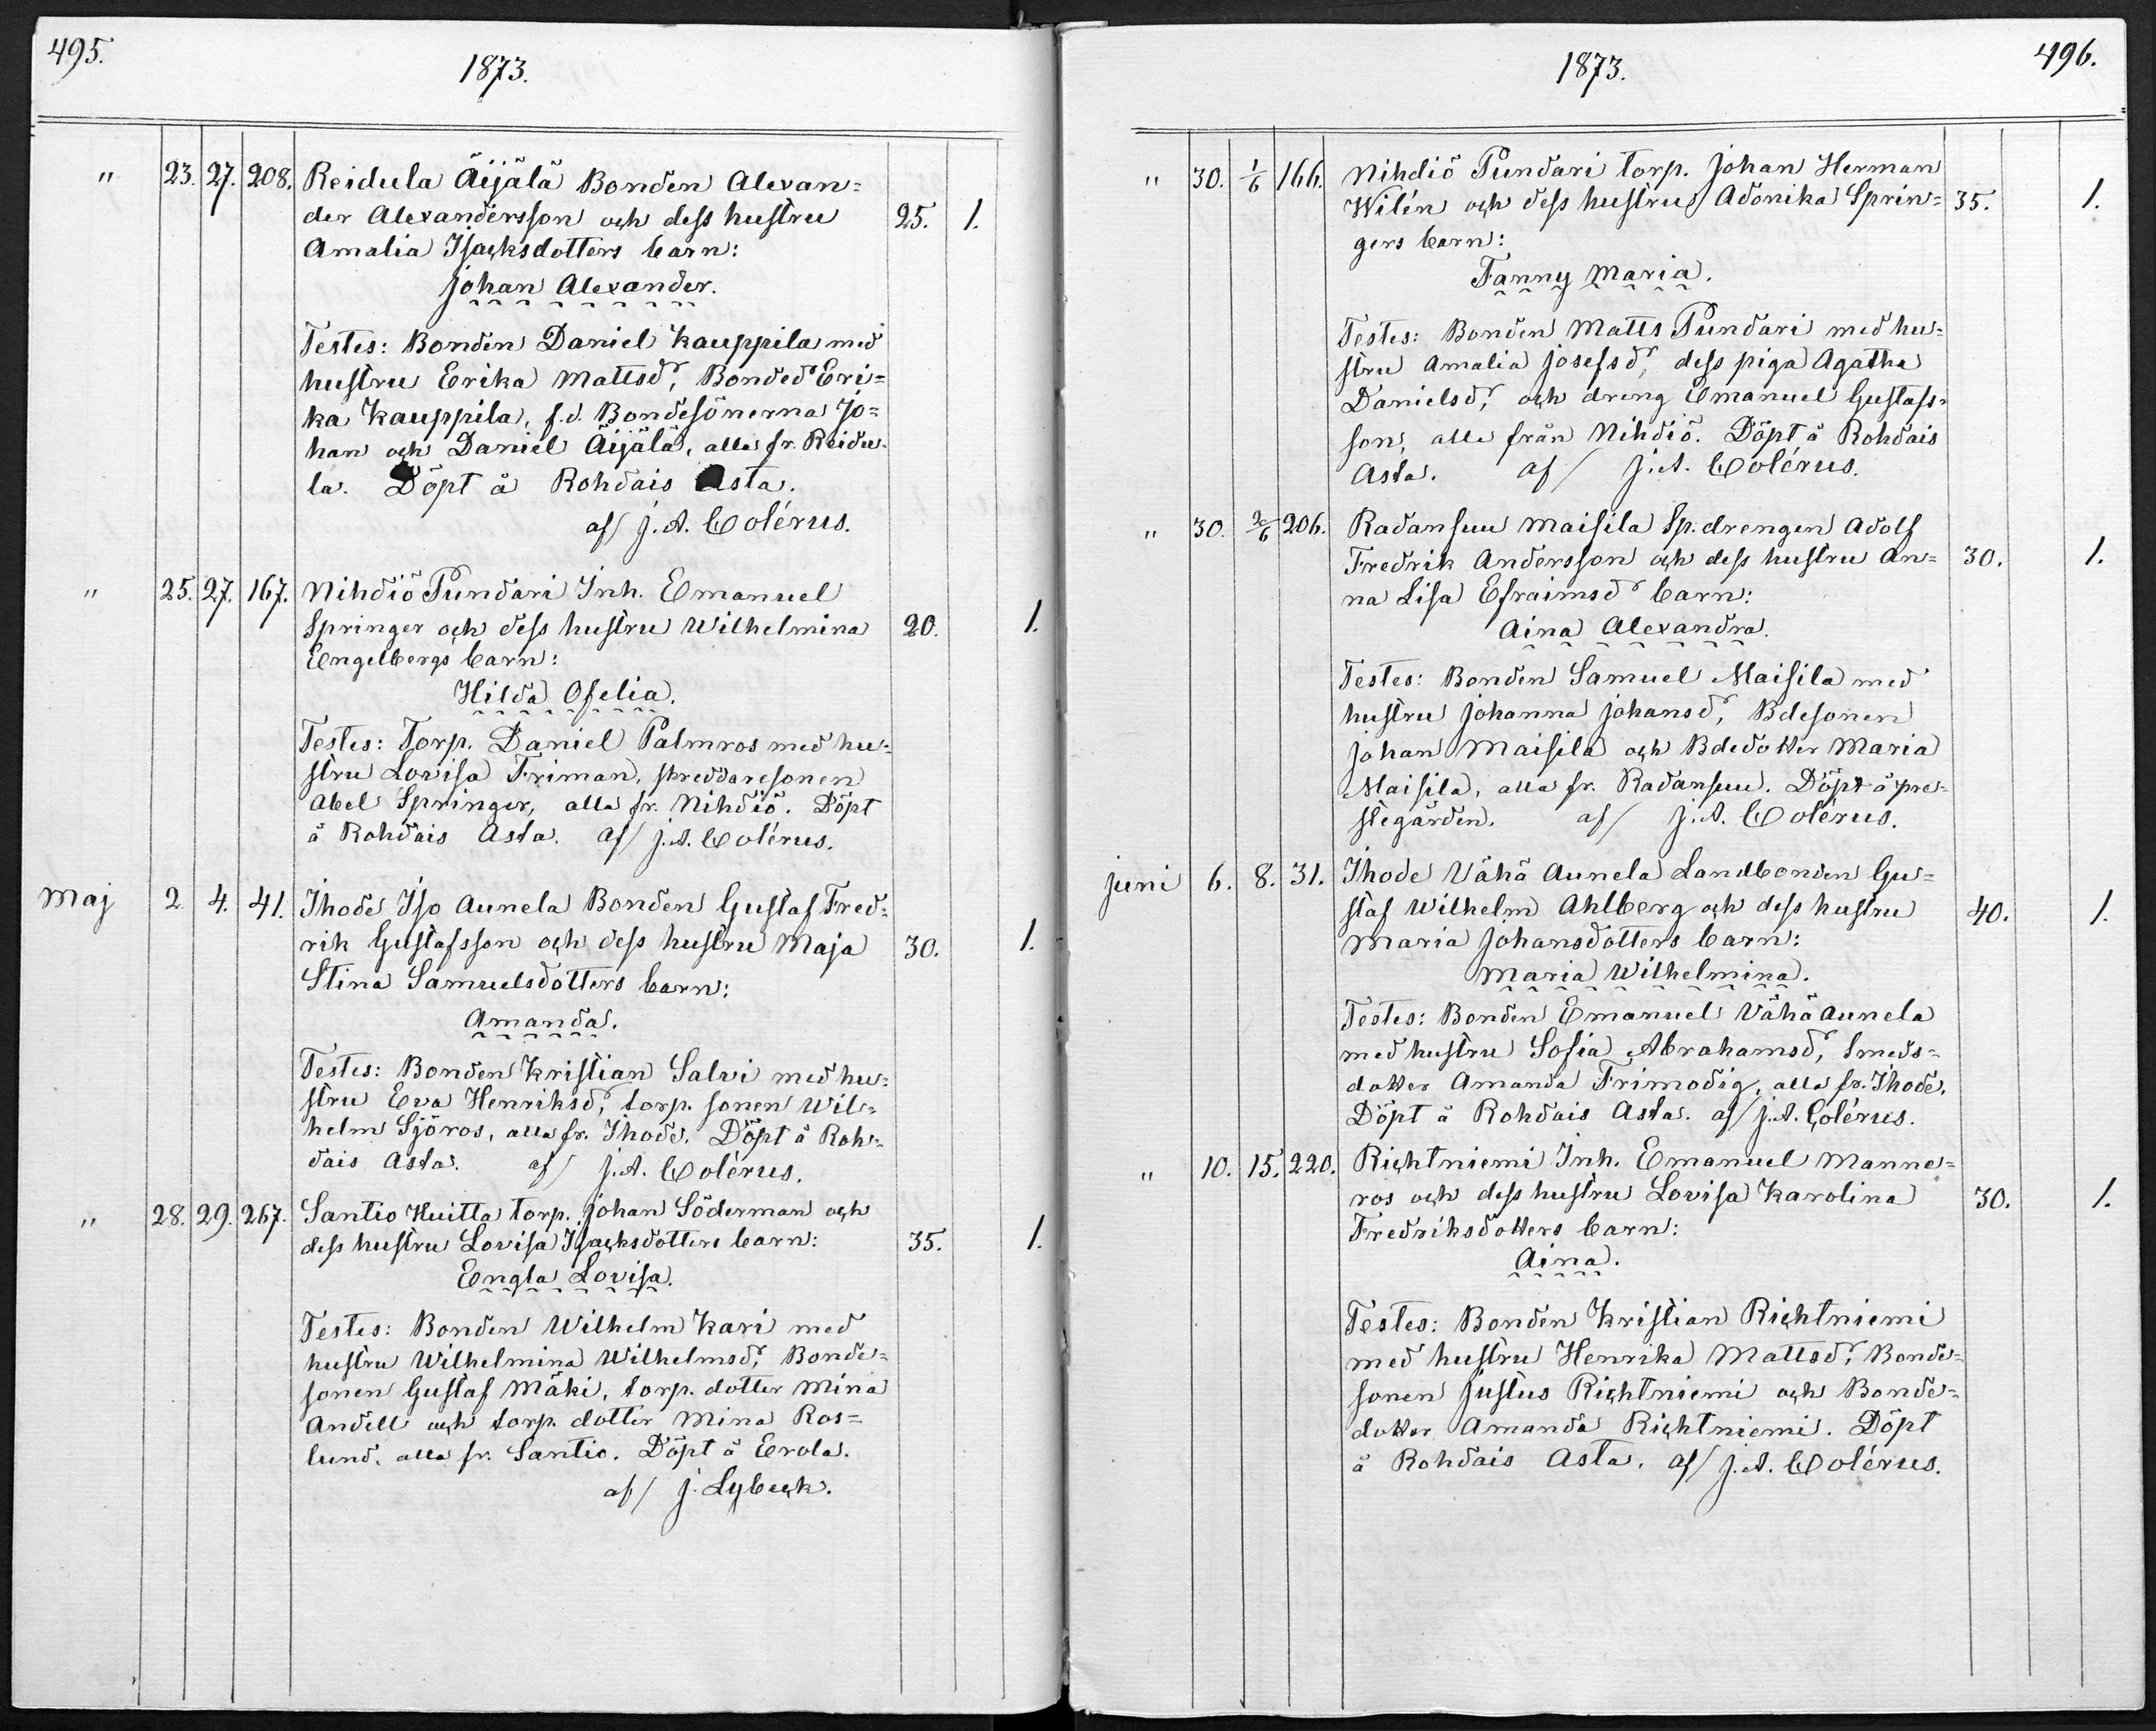 495.
1873.
" 23. 27. 208. Reidula Äijälä Bonden Alexan=
der Alexandersson och dess hustru 25. 1.
Amalia Isacksdotters barn:
Johan Alexander.
Testes: Bonden Daniel Kauppila med
hustru Erika Mattsd:r, Bonded:r Eri=
ka Kauppila, f.d. Bondesönerna Jo=
han och Daniel Äijälä, alla fr. Reidu-
la. Döpt å Rohdais Asta.
af/ J. A. Colérus.
" 25. 27. 167. Nihdiö Pundari Inh. Emanuel
Springer och dess hustru Wilhelmina 20. 1.
Engelbergs barn:
Hilda Ofelia.
Testes: Torp. Daniel Palmros med hu=
stru Lovisa Friman, skreddaresonen
Abel Springer, alla fr. Nihdiö. Döpt
å Rohdais Asta. af/ J. A. Colérus.
Maj 2 4. 41. Ihode Iso Aunela Bonden Gustaf Fred=
rik Gustafsson och dess hustru Maja 30. 1.
Stina Samuelsdotters barn:
Amanda.
Testes: Bonden Kristian Salvi med hu=
stru Eva Henriksd:r, torp. sonen Wil=
helm Sjöros, alla fr. Ihode. Döpt å Roh=
dais Asta. af/ J. A. Colérus.
" 28. 29. 267. Santio Huitta torp. Johan Söderman och
dess hustru Lovisa Isacksdotters barn: 35. 1.
Engla Lovisa.
Testes: Bonden Wilhelm Kari med
hustru Wilhelmina Wilhelmsd:r, Bonde=
sonen Gustaf Mäki, torp. dotter Mina
Andell och torp. dotter Mina Ros=
lund, alla fr. Santio. Döpt å Erola.
af/ J. Lybeck.
1873.
496.
" 30. 1/6 166. Nihdiö Pundari torp. Johan Herman
Wilén och dess hustru Adonika Sprin= 35. 1.
gers barn:
Fanny Maria.
Testes: Bonden Matts Pundari med hu=
stru Amalia Josefsd:r, dess piga Agatha
Danielsd:r, och dreng Emanuel Gustafs=
son, alla från Nihdiö. Döpt å Rohdais
Asta. af/ J. A. Colérus.
" 30. 20/6 206. Radansuu Maisila Sp. drengen Adolf
Fredrik Andersson och dess hustru An= 30. 1.
na Lisa Efraimsd:r barn:
Aina Alexandra.
Testes: Bonden Samuel Maisila med
hustru Johanna Johansd:r, Bdesonen
Johan Maisila och Bdedotter Maria
Maisila, alla fr. Radansuu. Döpt å pre=
stegården. af/ J. A. Colérus.
Juni 6. 8. 31. Ihode Vähä Aunela Landbonden Gu=
staf Wilhelm Ahlberg och dess hustru 40. 1.
Maria Johansdotters barn:
Maria Wilhelmina.
Testes: Bonden Emanuel Vähä Aunela
med hustru Sofia Abrahamsd:r, Smeds=
dotter Amanda Frimodig, alla fr. Ihode.
Döpt å Rohdais Asta. af/ J. A. Colérus.
" 10. 15. 220. Richtniemi Inh. Emanuel Manne=
ros och dess hustru Lovisa Karolina 30. 1.
Fredriksdotters barn:
Aina.
Testes: Bonden Kristian Richtniemi
med hustru Henrika Mattsd:r, Bonde=
sonen Justus Richtniemi och Bonde=
dotter Amanda Richtniemi. Döpt
å Rohdais Asta. af/ J. A. Colérus.